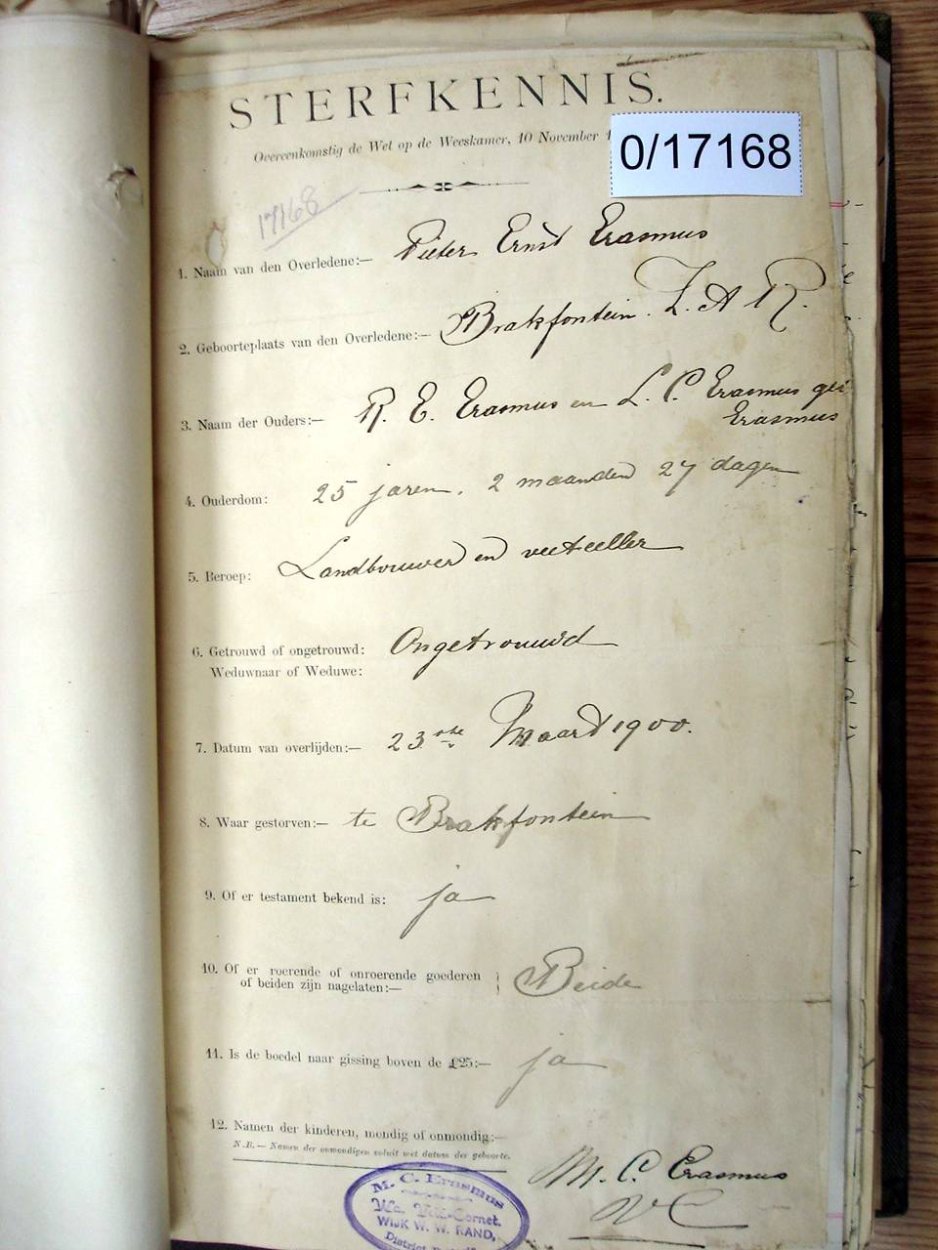 STERFKENNIS.
Overeenkomstig de Wet op de Weeskamer, 10 November
0/17168
17168
1. Naam van den Overledene:— Pieter Ernst Erasmus
2. Geboorteplaats van den Overledene:— Brakfontein. Z. A. R.
3. Naam der Ouders:— R. E. Erasmus en L. C. Erasmus
Erasmus
4. Ouderdom: 25 jaren. 2 maanden 27 dagen
5. Beroep: Landbouwer en veeteeller
6. Getrouwd of ongetrouwd: Ongetrouwd
Weduwnaar of Weduwe:
7. Datum van overlijden:— 23ste Maart 1900.
8. Waar gestorven:— te Brakfontein
9. Of er testament bekend is: ja
10. Of er roerende of onroerende goederen
of beiden zijn nagelaten:— Beide
11. Is de boedel naar gissing boven de £25:— ja
12. Namen der kinderen, mondig of onmondig:—
N.B.— Namen der onmondigen voluit met datum der geboorte.
M. C. Erasmus
VC
M. C. Erasmus
Wd. Veld-Cornet.
WIJK W. W. RAND,
District